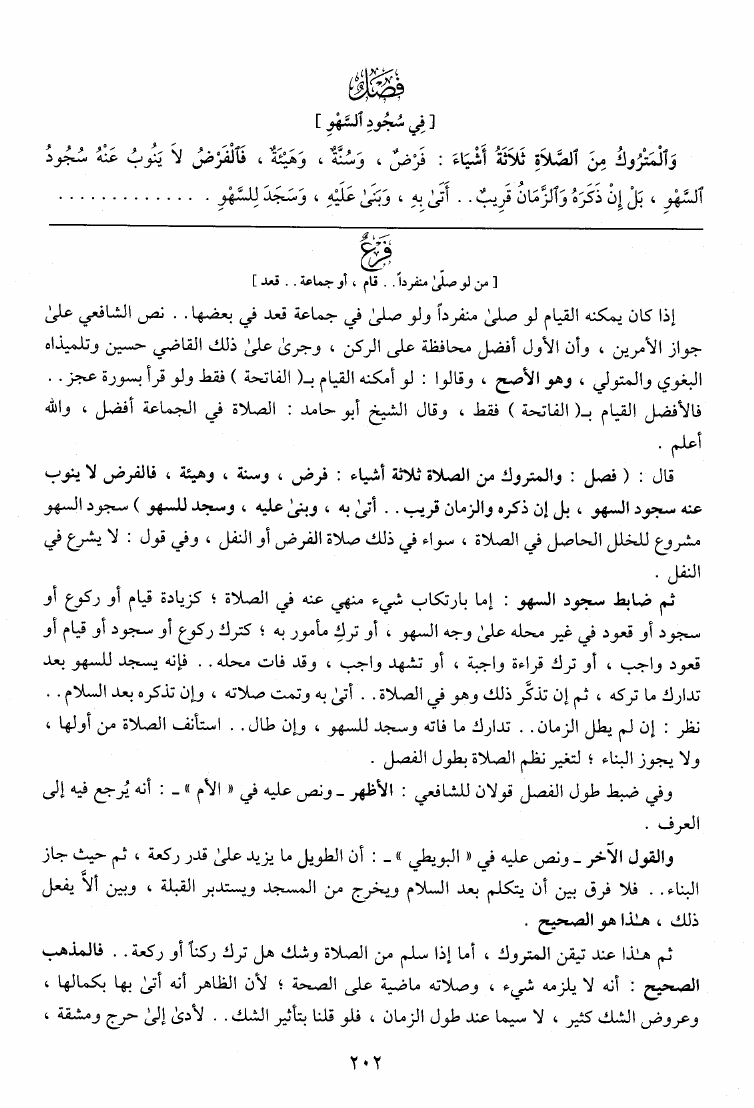 فَصْلٌ
[ فِي سُجُودِ ٱلسَّهْوِ ]
وَٱلْمَتْرُوكُ مِنَ ٱلصَّلَاةِ ثَلَاثَةُ أَشْيَاءَ : فَرْضٌ ، وَسُنَّةٌ ، وَهَيْئَةٌ ، فَٱلْفَرْضُ لاَ يَنُوبُ عَنْهُ سُجُودُ
ٱلسَّهْوِ ، بَلْ إِنْ ذَكَرَهُ وَٱلزَّمَانُ قَرِيبٌ . . أَتَىٰ بِهِ ، وَبَنَىٰ عَلَيْهِ ، وَسَجَدَ لِلسَّهْوِ . . . . . . . . . . . . . .
فَرْعٌ
[ من لو صلّىٰ منفرداً . . قام ، أو جماعة . . قعد ]
إذا كان يمكنه القيام لو صلىٰ منفرداً ولو صلىٰ في جماعة قعد في بعضها . . نص الشافعي علىٰ
جواز الأمرين ، وأن الأول أفضل محافظة على الركن ، وجرىٰ علىٰ ذلك القاضي حسين وتلميذاه
البغوي والمتولي ، وهو الأصح ، وقالوا : لو أمكنه القيام بـ( الفاتحة ) فقط ولو قرأ بسورة عجز . .
فالأفضل القيام بـ( الفاتحة ) فقط ، وقال الشيخ أبو حامد : الصلاة في الجماعة أفضل ، والله
أعلم .
قال : ( فصل : والمتروك من الصلاة ثلاثة أشياء : فرض ، وسنة ، وهيئة ، فالفرض لا ينوب
عنه سجود السهو ، بل إن ذكره والزمان قريب . . أتىٰ به ، وبنىٰ عليه ، وسجد للسهو ) سجود السهو
مشروع للخلل الحاصل في الصلاة ، سواء في ذلك صلاة الفرض أو النفل ، وفي قول : لا يشرع في
النفل .
ثم ضابط سجود السهو : إما بارتكاب شيء منهي عنه في الصلاة ؛ كزيادة قيام أو ركوع أو
سجود أو قعود في غير محله علىٰ وجه السهو ، أو تركِ مأمور به ؛ كترك ركوع أو سجود أو قيام أو
قعود واجب ، أو ترك قراءة واجبة ، أو تشهد واجب ، وقد فات محله . . فإنه يسجد للسهو بعد
تدارك ما تركه ، ثم إن تذكَّر ذلك وهو في الصلاة . . أتىٰ به وتمت صلاته ، وإن تذكره بعد السلام . .
نظر : إن لم يطل الزمان . . تدارك ما فاته وسجد للسهو ، وإن طال . . استأنف الصلاة من أولها ،
ولا يجوز البناء ؛ لتغير نظم الصلاة بطول الفصل .
وفي ضبط طول الفصل قولان للشافعي : الأظهر ـ ونص عليه في « الأم » ـ : أنه يُرجع فيه إلى
العرف .
والقول الآخر ـ ونص عليه في « البويطي » ـ : أن الطويل ما يزيد علىٰ قدر ركعة ، ثم حيث جاز
البناء . . فلا فرق بين أن يتكلم بعد السلام ويخرج من المسجد ويستدبر القبلة ، وبين ألاَّ يفعل
ذلك ، هـٰذا هو الصحيح .
ثم هـٰذا عند تيقن المتروك ، أما إذا سلم من الصلاة وشك هل ترك ركناً أو ركعة . . فالمذهب
الصحيح : أنه لا يلزمه شيء ، وصلاته ماضية على الصحة ؛ لأن الظاهر أنه أتىٰ بها بكمالها ،
وعروض الشك كثير ، لا سيما عند طول الزمان ، فلو قلنا بتأثير الشك . . لأدىٰ إلىٰ حرج ومشقة ،
٢٠٢